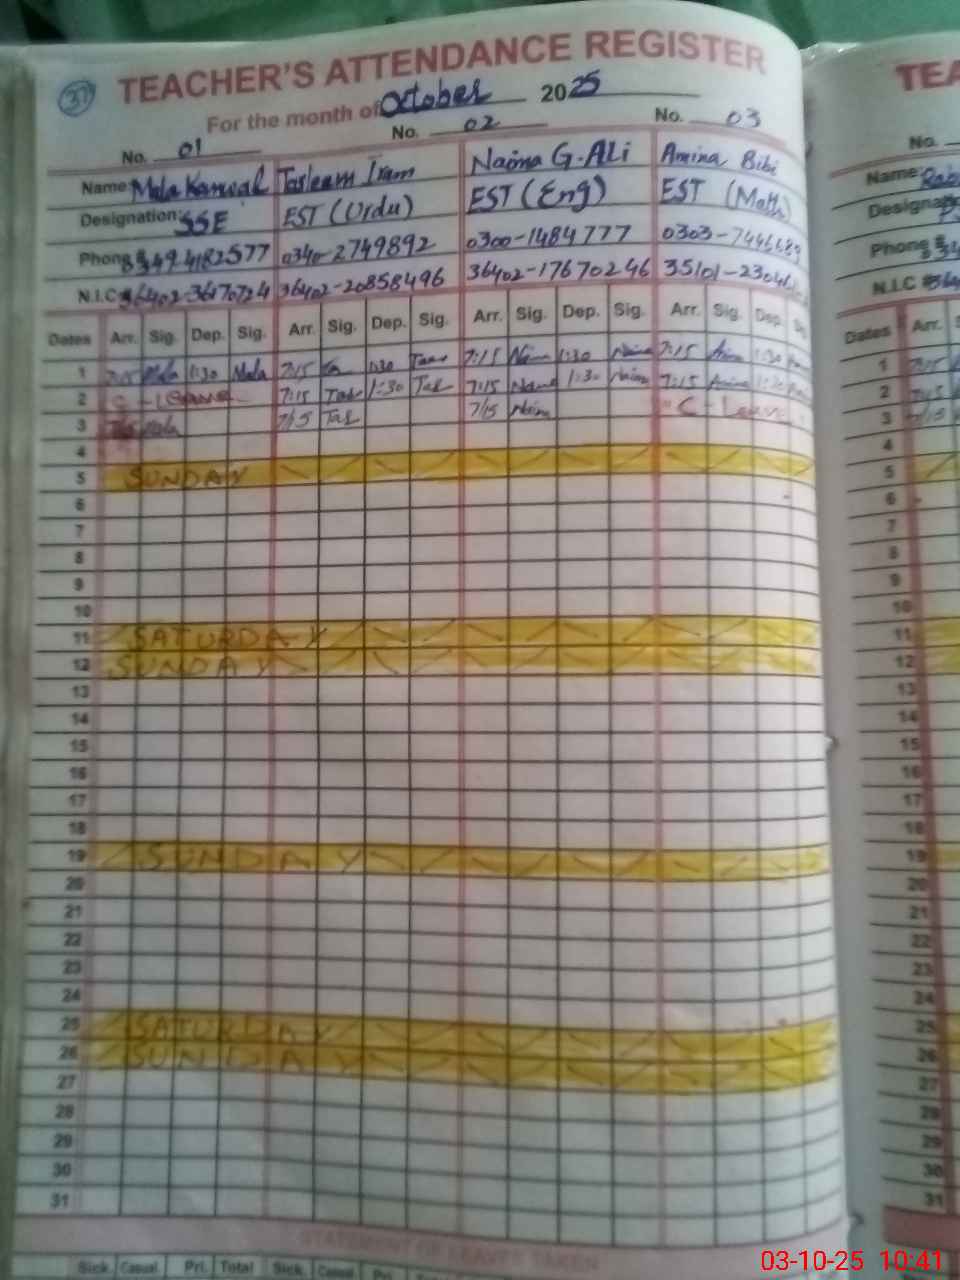 37
TEACHER'S ATTENDANCE REGISTER
For the month of October 2025
No. 01 No. 02 No. 03
Name: Mala Kanwal Tasleem Iram Naima G. Ali Amina Bibi
Designation: SSE EST (Urdu) EST (Eng) EST (Math)
Phone # 0349 4182577 0340-2749892 0300-1484777 0303-7446689
N.I.C # 36402-36170724 36402-20858496 36402-17670246 35101-23046
Dates Arr. Sig. Dep. Sig. Arr. Sig. Dep. Sig. Arr. Sig. Dep. Sig. Arr. Sig. Dep.
1 7:15 Mala 1:30 Mala 7:15 1:30 7:15 1:30 7:15 1:30
2 C-Leave 7:15 Tas 1:30 Tas 7:15 1:30 7:15
3 Mala 7/15 Tas 7/15 C-Leave
4
5 SUNDAY
6
7
8
9
10
11 SATURDAY
12 SUNDAY
13
14
15
16
17
18
19 SUNDAY
20
21
22
23
24
25 SATURDAY
26 SUNDAY
27
28
29
30
31
STATEMENT OF LEAVES TAKEN
Sick. Casual Pri. Total Sick. Casual Pri.
TEA
No.
Name:
Phone #
N.I.C #
Dates Arr.
1
2
3
4
5
6
7
8
9
10
11
12
13
14
15
16
17
18
19
20
21
22
23
24
25
26
27
28
29
30
31
03-10-25 10:41